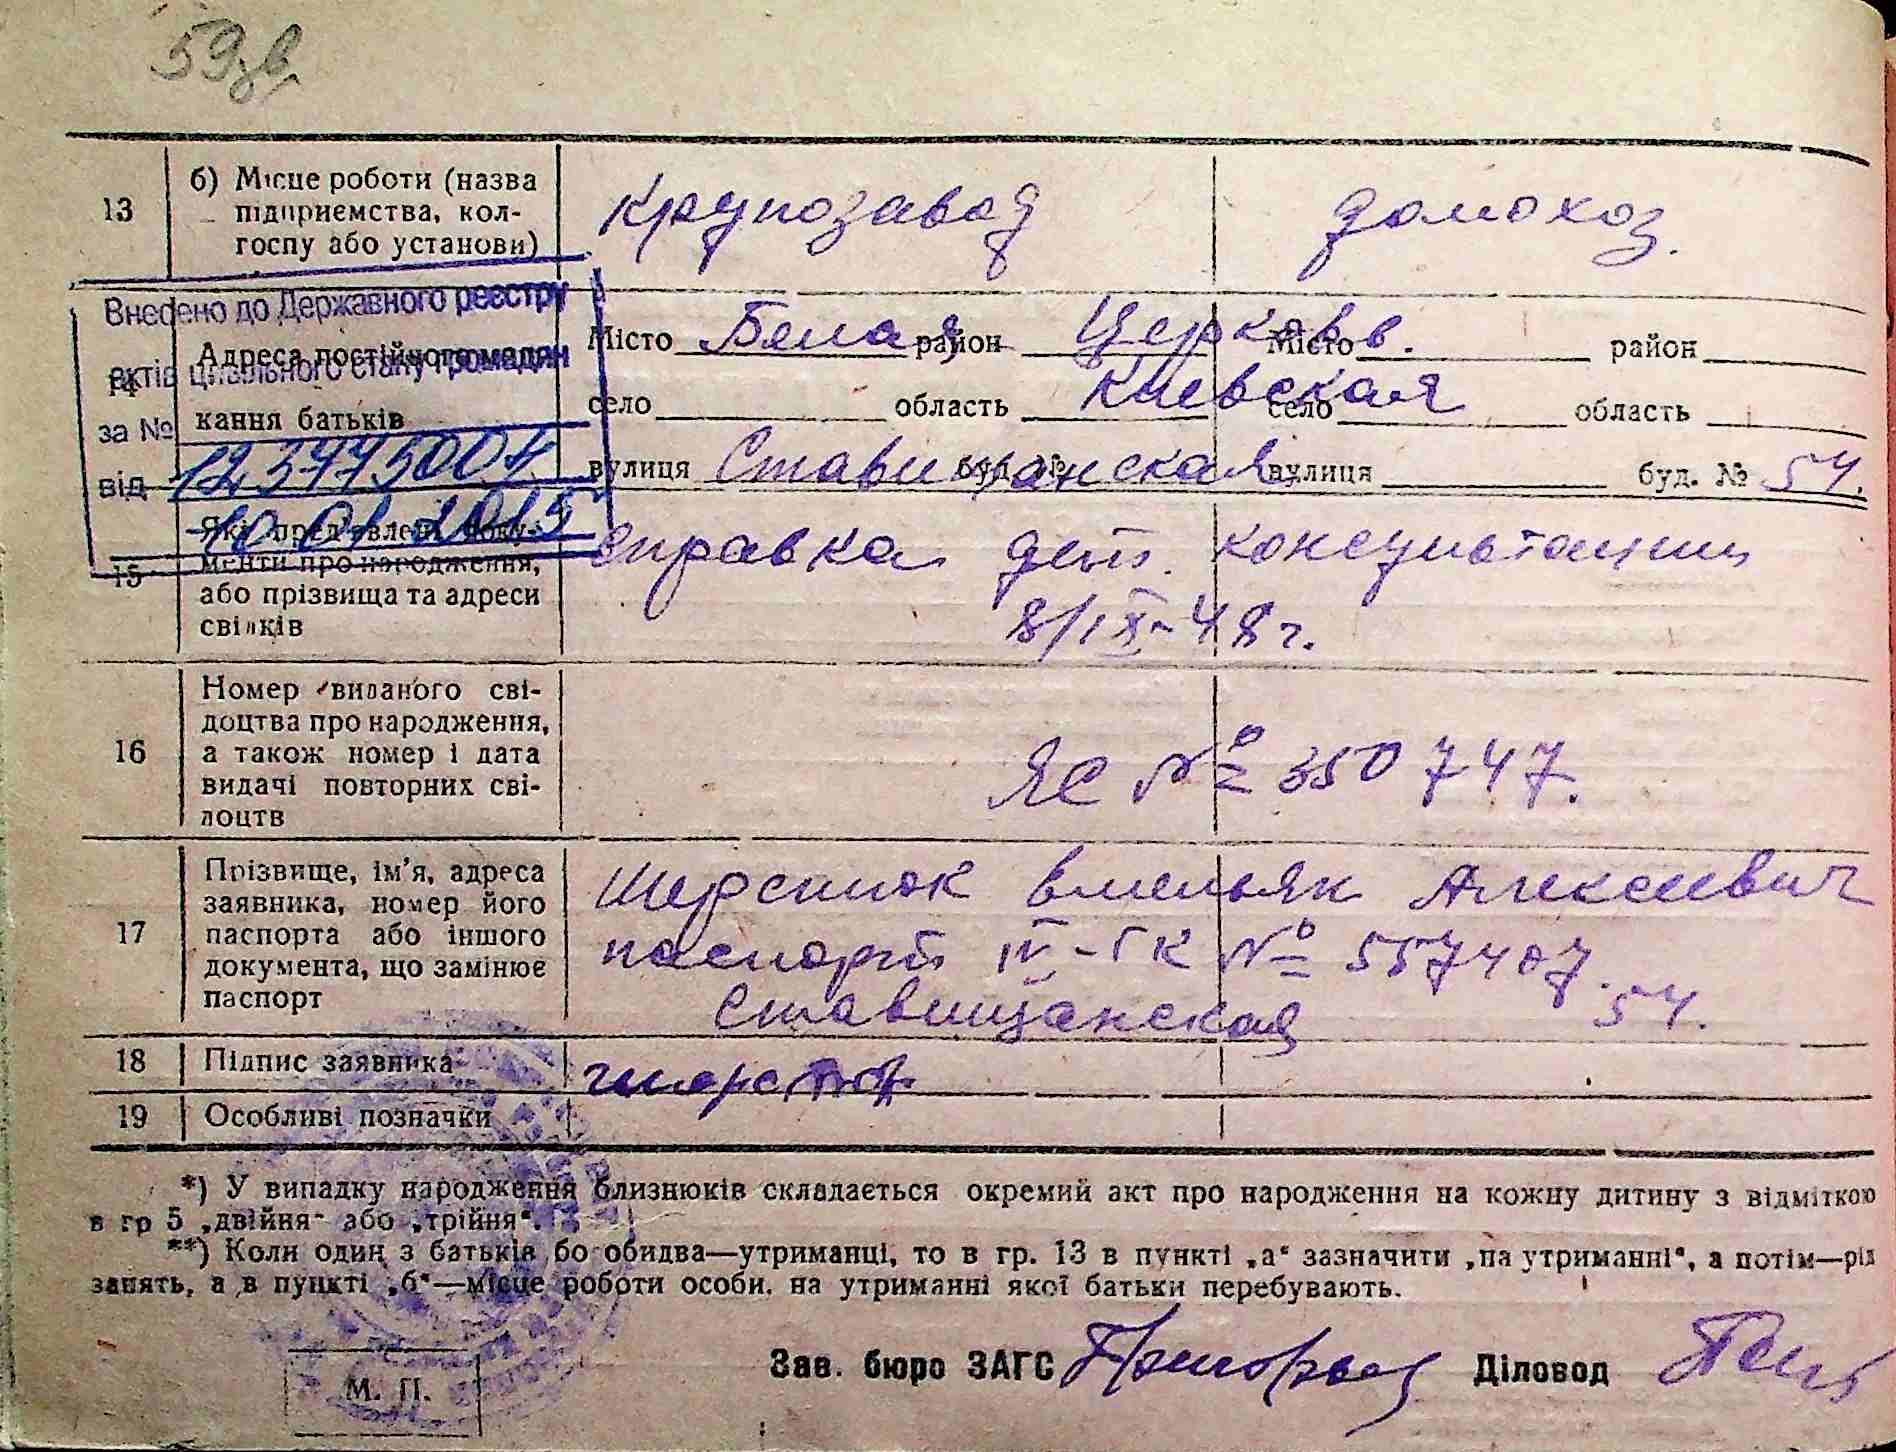 59зв
13 б) Місце роботи (назва підприємства, колгоспу або установи) Крупозавод домохоз.
Внесено до Державного реєстру
актів цивільного стану громадян
за № 12377500
від 10.01.2015
14 Адреса постійного кання батьків
Місто Белая район Церковь. Місто район
село область Киевская село область
вулиця Ставищанская буд. № вулиця буд. № 54.
15 Які пред'явлені документи про народження, або прізвища та адреси свідків
Справка дет. консультации
8/IX-48 г.
16 Номер виданого свідоцтва про народження, а також номер і дата видачі повторних свідоцтв
ЯС № 350747.
17 Прізвище, ім'я, адреса заявника, номер його паспорта або іншого документа, що замінює паспорт
Шерстюк Емельян Алексеевич
паспорт IV-ГК № 557407.
Ставищанская 54.
18 Підпис заявника
19 Особливі позначки
*) У випадку народження близнюків складається окремий акт про народження на кожну дитину з відміткою
в гр 5 „двійня“ або „трійня“.
**) Коли один з батьків бо обидва—утриманці, то в гр. 13 в пункті „а“ зазначити „на утриманні“, а потім—рід
занять, а в пункті „б“—місце роботи особи, на утриманні якої батьки перебувають.
Зав. бюро ЗАГС Діловод
М. П.